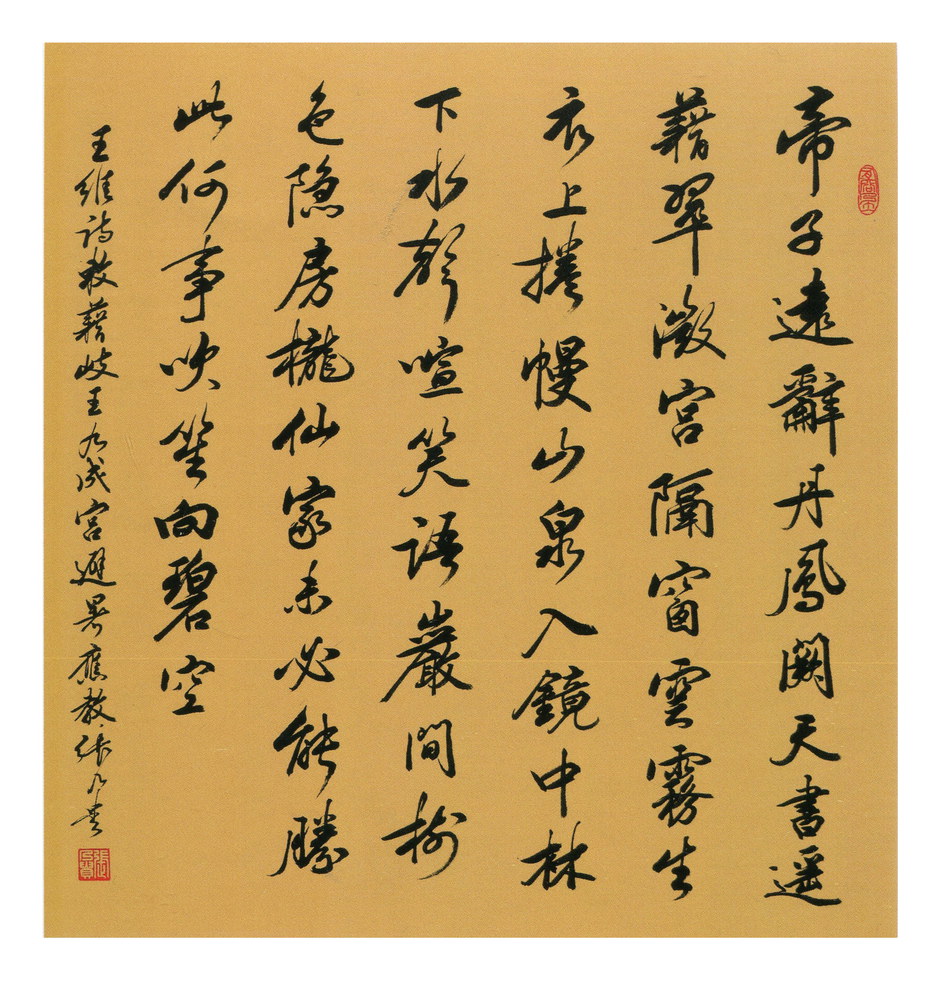 帝子遠辭丹鳳闕天書遥
藉翠微宮隔窗雲霧生
衣上捲幔山泉入鏡中林
下水聲喧笑語巖間樹
色隐房櫳仙家未必能勝
此何事吹笙向碧空
王維詩敕藉岐王九成宮避暑應教張乃貴